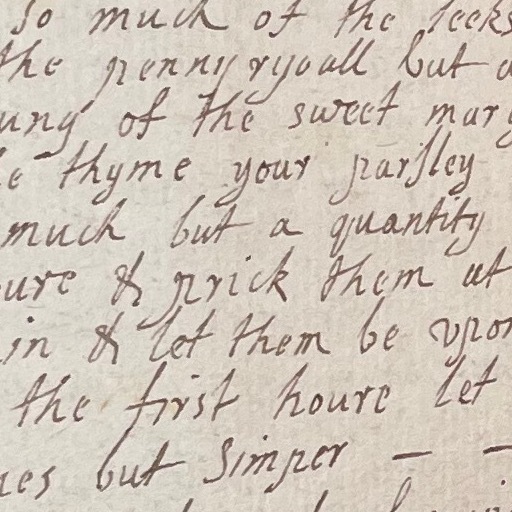 so much of the leeks
the pennyryoall but a
ung of the sweet marg
e thyme your parsley
much but a quantity
ure & prick them at
in & let them be vpon
the first houre let
nes but simper — —